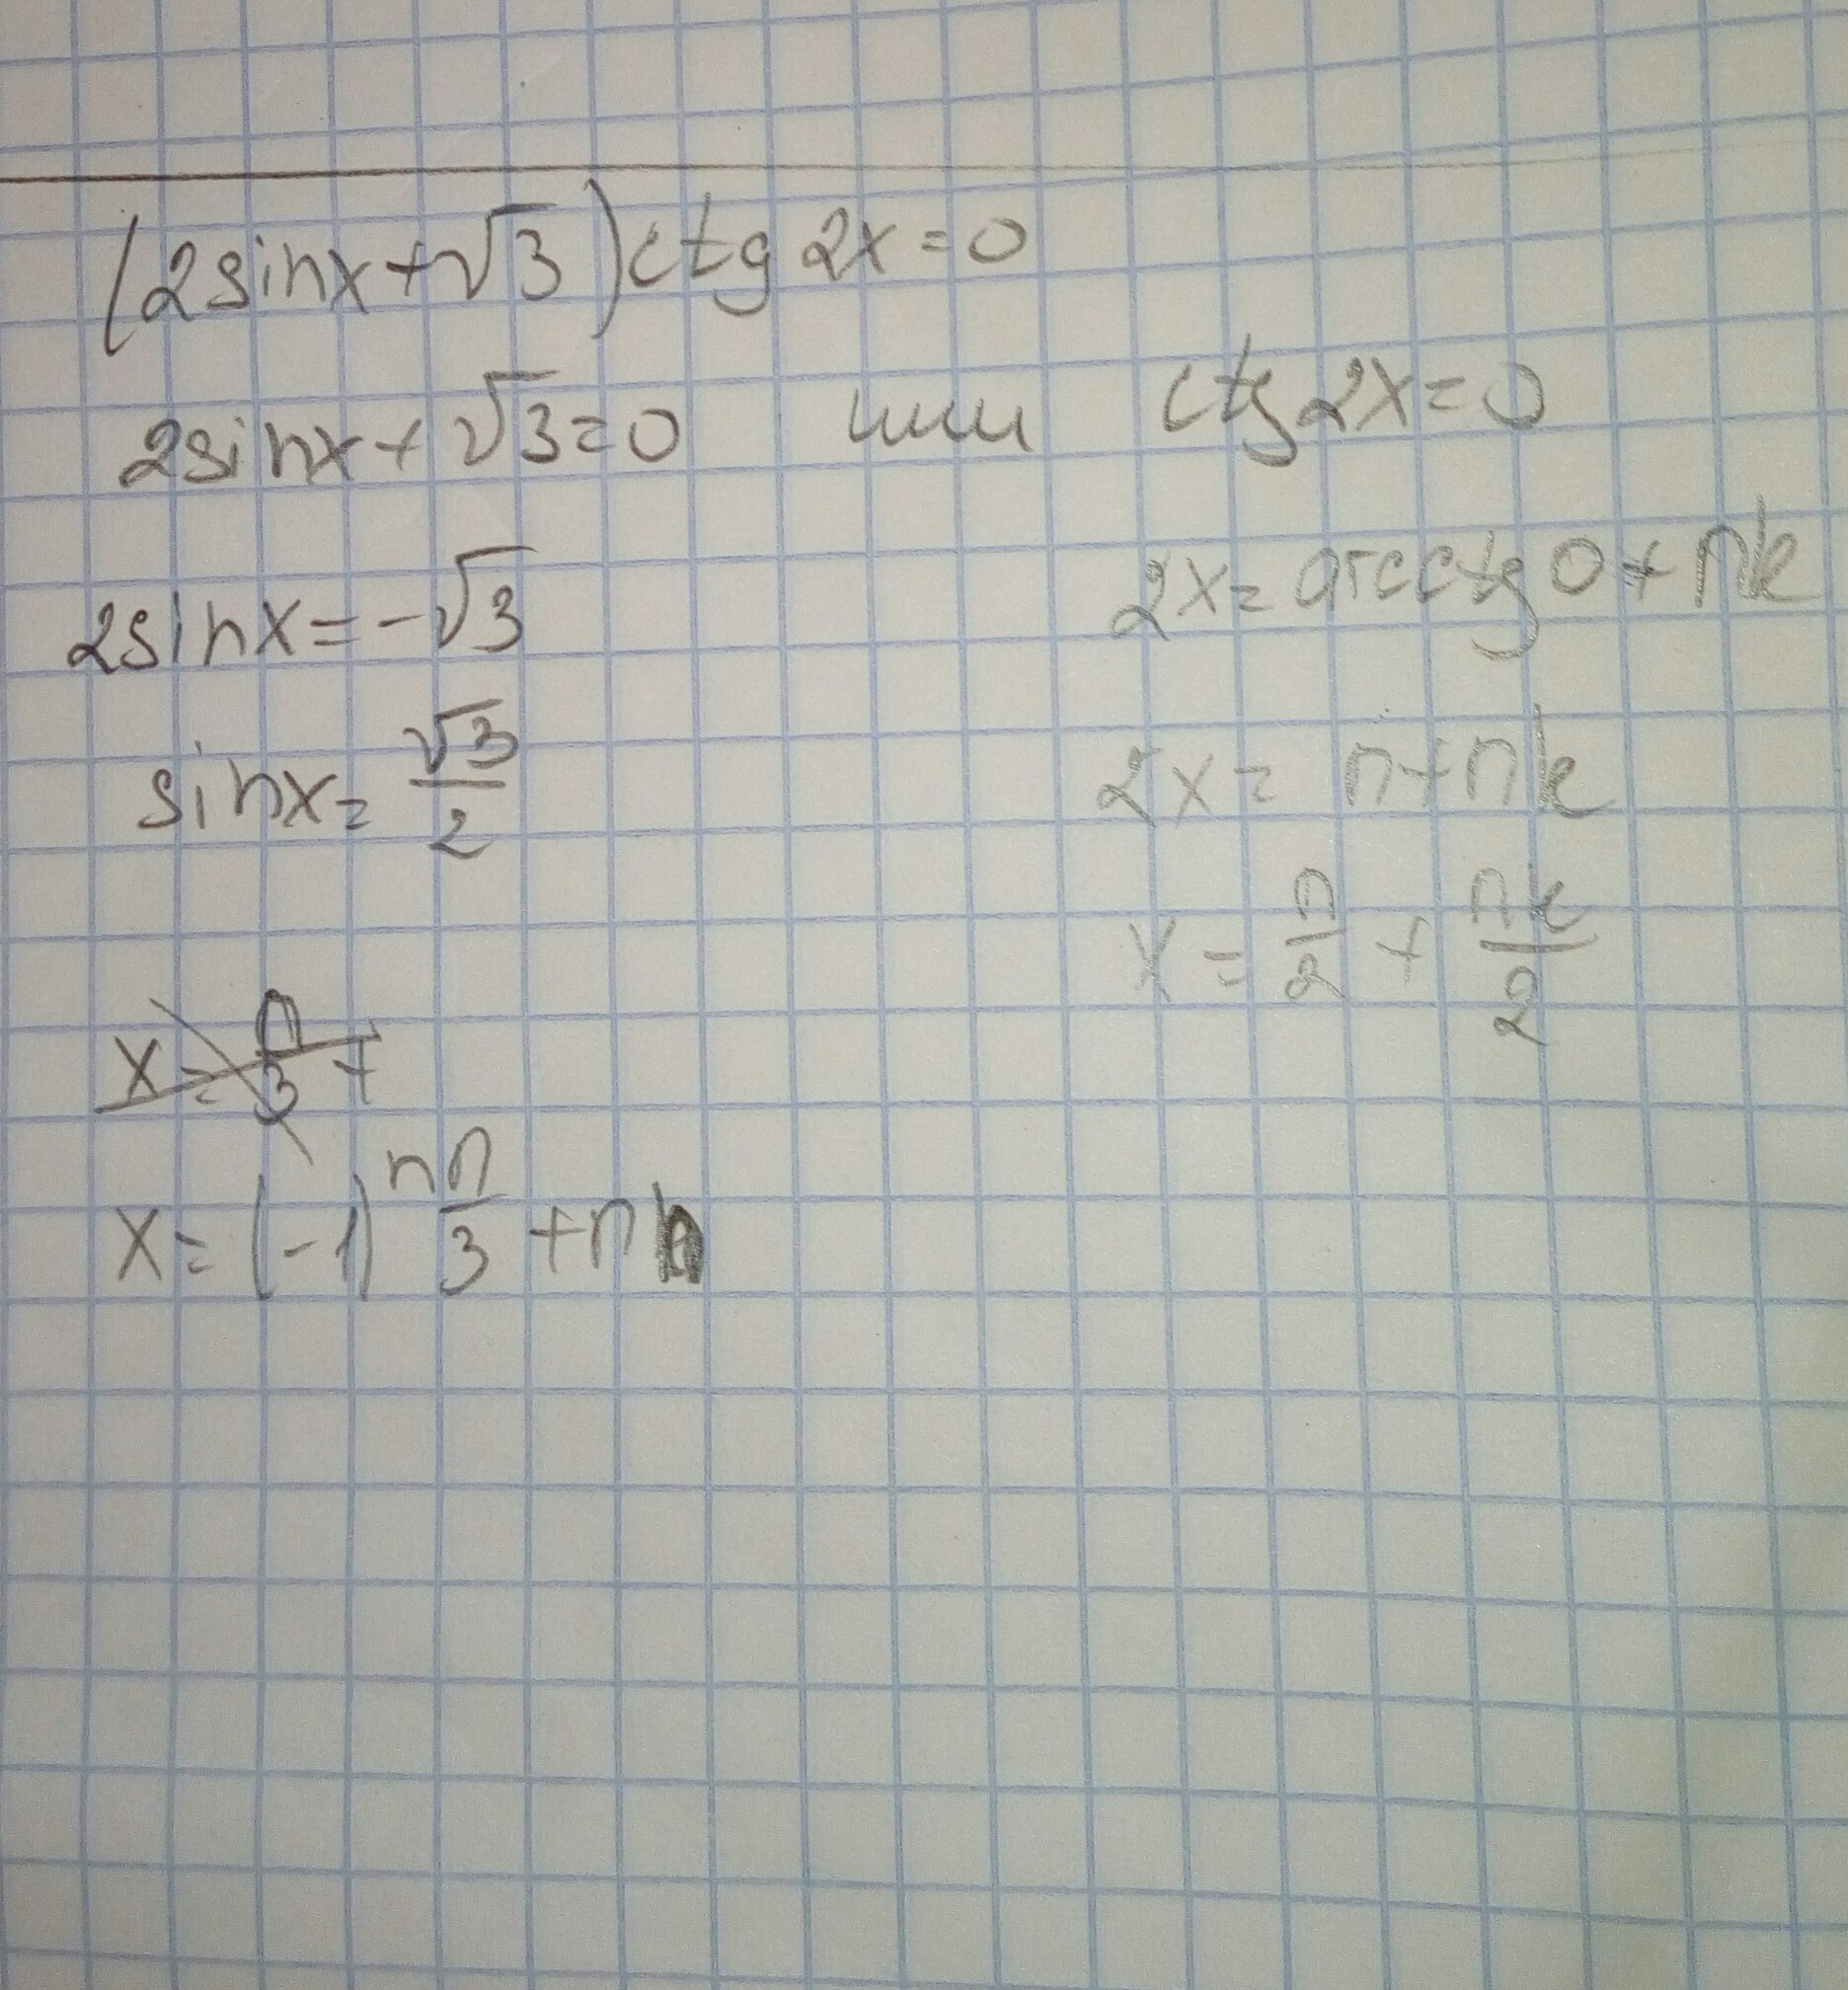 (2sinx+√3)ctg 2x=0
2sinx+√3=0 или ctg2x=0
2sinx=-√3
2x=arcctg0+πk
sinx=√3/2
2x=π+πk
x=π/2+πk/2
x=π/3+
x=(-1)ⁿπ/3+πn